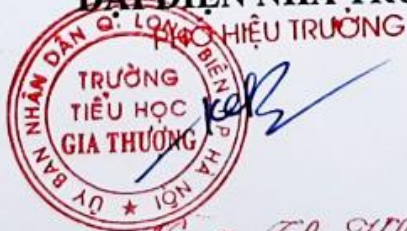 ĐẠI DIỆN NHÀ TRƯ
PHÓ HIỆU TRƯỞNG
ỦY BAN NHÂN DÂN Q. LONG BIÊN T.P HÀ NỘI
TRƯỜNG
TIỂU HỌC
GIA THƯỢNG